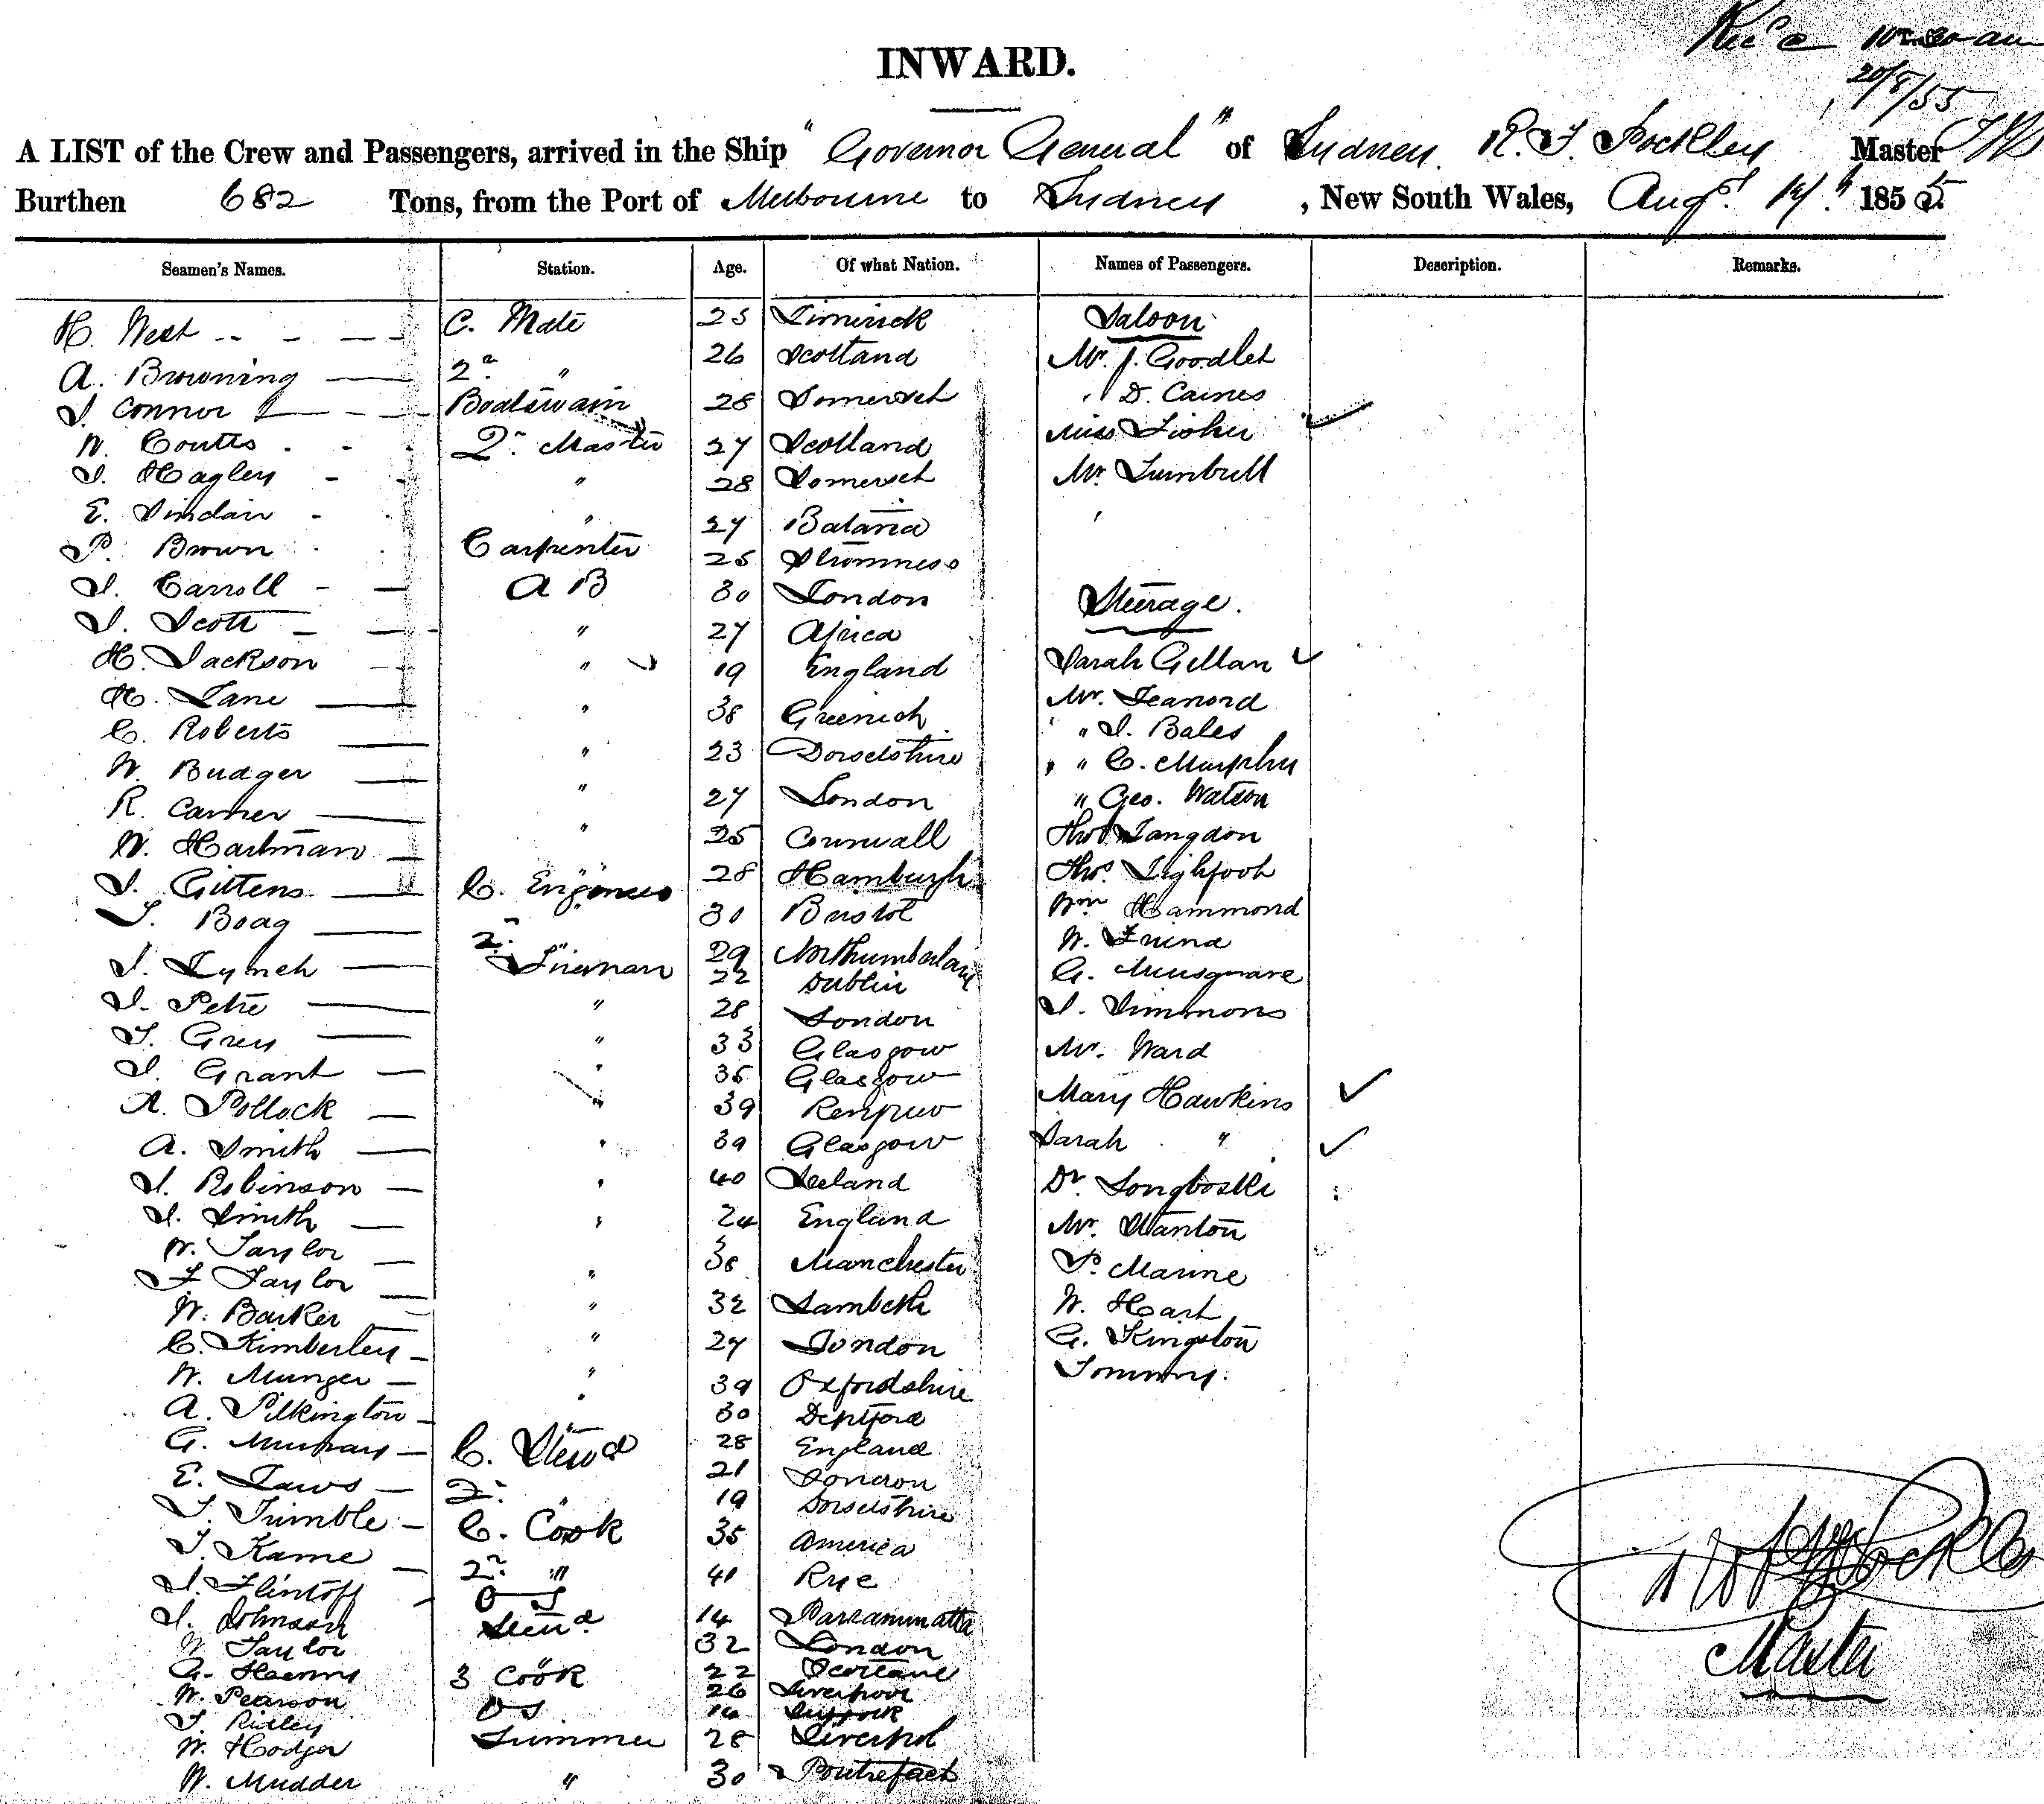 INWARD.
20/8/55
A LIST of the Crew and Passengers, arrived in the Ship "Governor General" of Sydney R. F. Pockley Master
Burthen 682 Tons, from the Port of Melbourne to Sydney, New South Wales, Augst 19th 1855.
Seamen's Names. Station. Age. Of what Nation. Names of Passengers. Description. Remarks.
H. West C. Mate 25 Limerick Saloon
A. Browning 2nd " 26 Scotland Mr. J. Goodlet
J. Connor Boatswain 28 Somerset " D. Caines
W. Coutts Qr. Master 27 Scotland Miss Fisher
J. Hagley " 28 Somerset Mr. Turnbull
E. Sinclair " 27 Batavia
P. Brown Carpenter 25 Stromness
J. Carroll A B 30 London Steerage.
J. Scott " 27 Africa
H. Jackson " 19 England Sarah Gellan
H. Lane " 38 Greenich Mr. Leanord
C. Roberts " 23 Dorsetshire " J. Bales
W. Budger " 27 London " C. Murphy
R. Carner " 25 Cornwall " Geo. Watson
W. Hartman " 28 Hamburgh Thos Langdon
J. Gittens C. Engineer 30 Bristol Thos. Lighfoot
T. Boag 2nd " 29 Northumberland Wm Hammond
J. Lynch Fireman 22 Dublin W. Friend
J. Petre " 28 London G. Musgrave
T. Grey " 33 Glasgow J. Simmons
J. Grant " 35 Glasgow Mr. Ward
A. Pollock " 39 Renfrew Mary Hawkins
A. Smith " 39 Glasgow Sarah "
J. Robinson " 40 Ireland Dr.
J. Smith " 24 England Mr. Stanton
W. Taylor 38 Manchester P. Marine
F. Taylor " 32 Lambeth W. Hart
W. Barker " 27 London G. Kingston
C. Kimberley " 39 Oxfordshire Tommy.
W. Munger " 30 Deptford
A. Pilkington " 28 England
G. Murray C. Stewd 21 London
E. Laws 2nd " 19 Dorsetshire
T. Trimble C. Cook 35 America
T. Kame 2nd " 41 Rye
J. Flintoff O S 14 Parrammatta
J. Johnson Stewd. 32 London
W. Taylor " 22 Scotland
G. 3 Cook 26 Liverpool
W. Pearson O S 14 Suffolk
T. Ridley Trimmer 28 Liverpool
W. Hodger " 30 Pontrefact
W. Mudder
Master